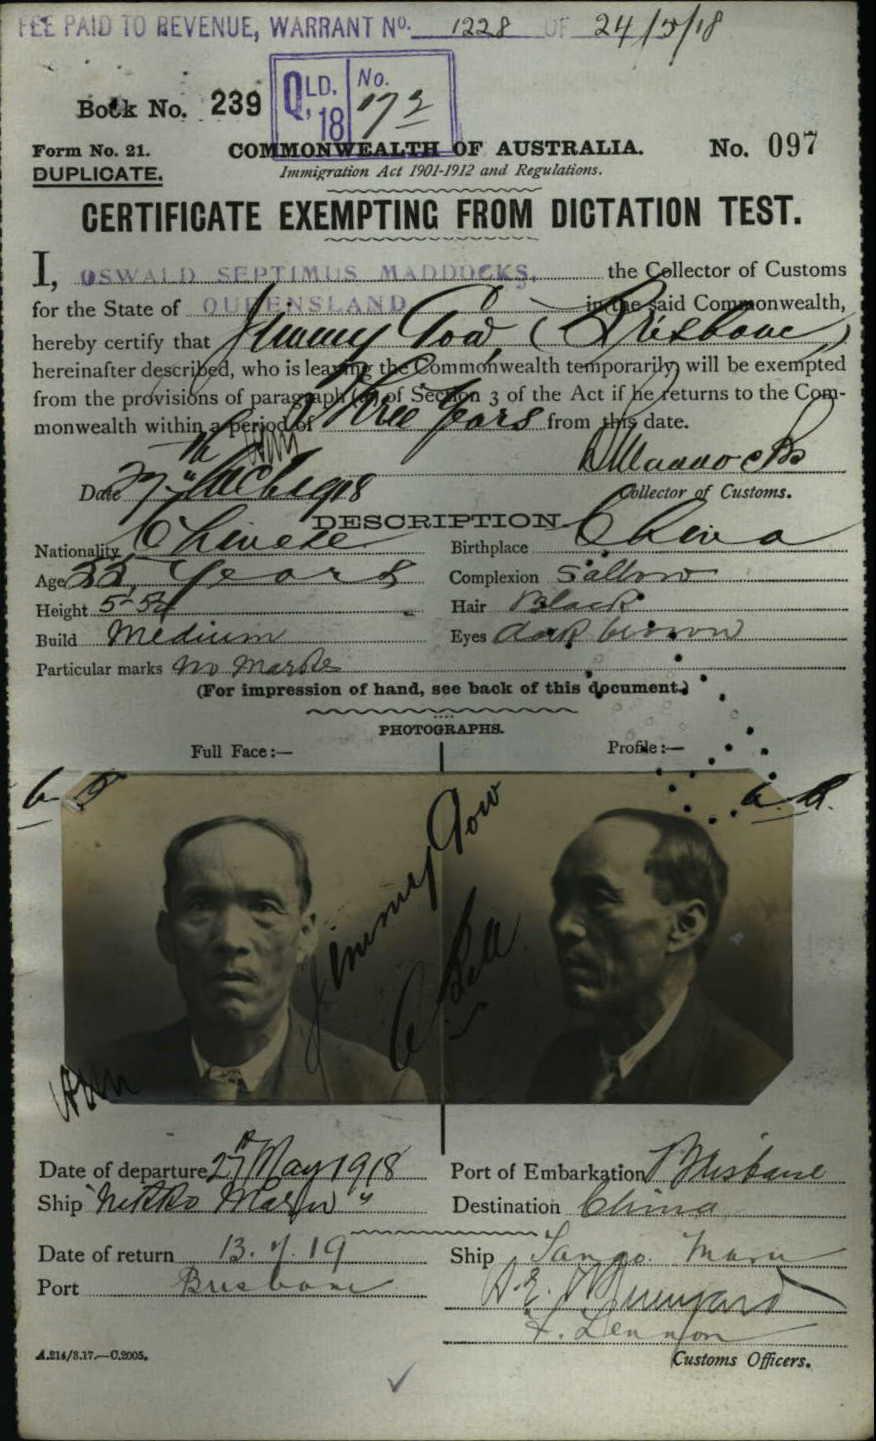 FEE PAID TO REVENUE, WARRANT No. 1228 OF 24/5/18
Book No. 239
QLD. 18 No. 172
Form No. 21.
DUPLICATE.
COMMONWEALTH OF AUSTRALIA.
No. 097
Immigration Act 1901-1912 and Regulations.
CERTIFICATE EXEMPTING FROM DICTATION TEST.
I, OSWALD SEPTIMUS MADDOCKS, the Collector of Customs
for the State of QUEENSLAND in the said Commonwealth,
hereby certify that Jimmy Gow, (Brisbane)
hereinafter described, who is leaving the Commonwealth temporarily, will be exempted
from the provisions of paragraph (a) of Section 3 of the Act if he returns to the Com-
monwealth within a period of Three Years from this date.
Date 27th 1918
Collector of Customs.
DESCRIPTION
Nationality Chinese Birthplace China
Age 55 Years Complexion Sallow
Height Hair Black
Build Medium Eyes dark brown
Particular marks No Marks
(For impression of hand, see back of this document.)
PHOTOGRAPHS.
Full Face:— Profile:—
Jimmy Gow
Date of departure 27th May 1918 Port of Embarkation Brisbane
Ship "Nikko Maru" Destination China
Date of return 13.7.19 Ship Tango Maru
Port Brisbane
F. Lennon
Customs Officers.
A.214/3.17.—C.2005.